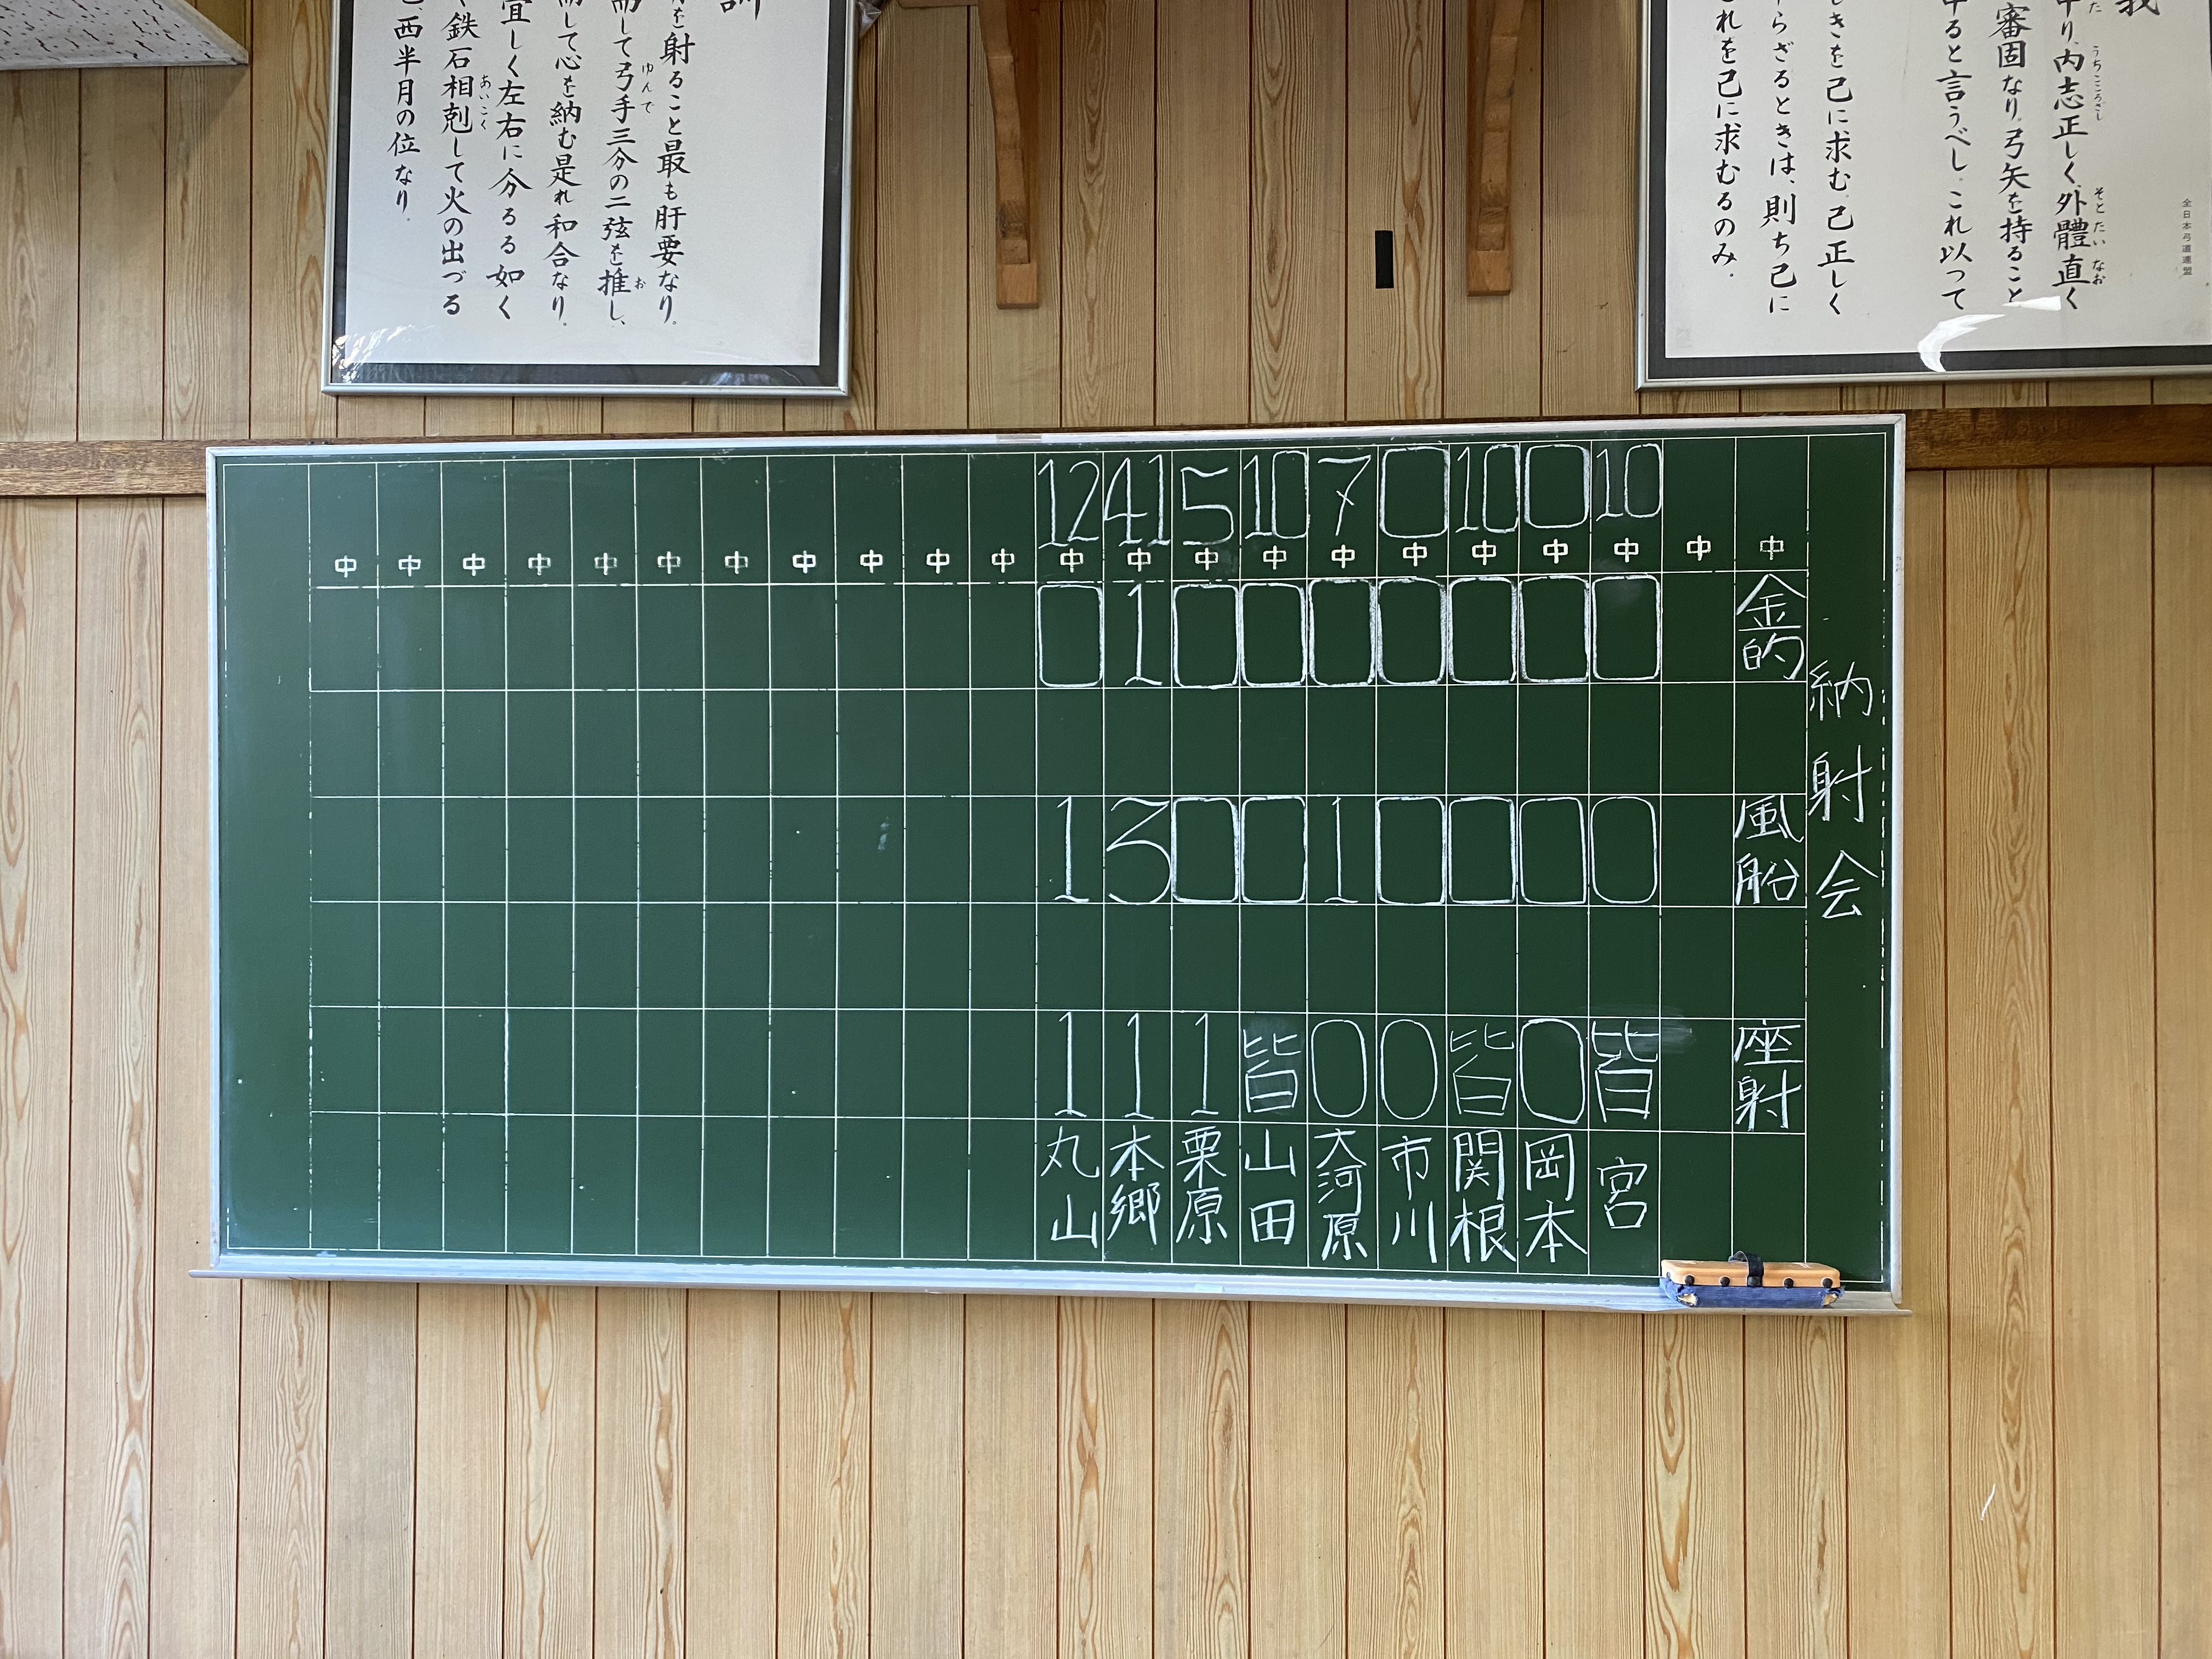 我
中り、内志正しく、外體直く
審固なり。弓矢を持ること
中ると言うべし。これ以って
しきを己に求む。己正しく
らざるときは、則ち己に
れを己に求むるのみ。
全日本弓道連盟
訓
を射ること最も肝要なり。
而して弓手三分の二弦を推し、
而して心を納む是れ和合なり。
宜しく左右に分るる如く
鉄石相剋して火の出づる
西半月の位なり。
納射会
中 金的 風船 座射
中
10 中 0 0 皆 宮
0 中 0 0 0 岡本
10 中 0 0 皆 関根
0 中 0 0 0 市川
7 中 0 1 0 大河原
10 中 0 0 皆 山田
5 中 0 0 1 栗原
41 中 1 3 1 本郷
12 中 0 1 1 丸山
中
中
中
中
中
中
中
中
中
中
中